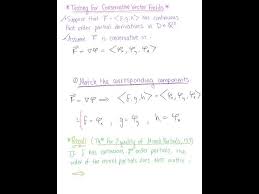 * Testing for Conservative Vector Fields *
• Suppose that F = <f, g, h> has continuous
first order partial derivatives in D ⊆ R³
• Assume F is conservative ⇒
F = ∇φ = <φx, φy, φz>
① Match the corresponding components
F = ∇φ ⇒ <f, g, h> = <φx, φy, φz>
⇒ f = φx, g = φy, h = φz
* Recall (Thm for Equality of Mixed Partials,
If f has continuous order partials, the
order of the mixed partials does not matter